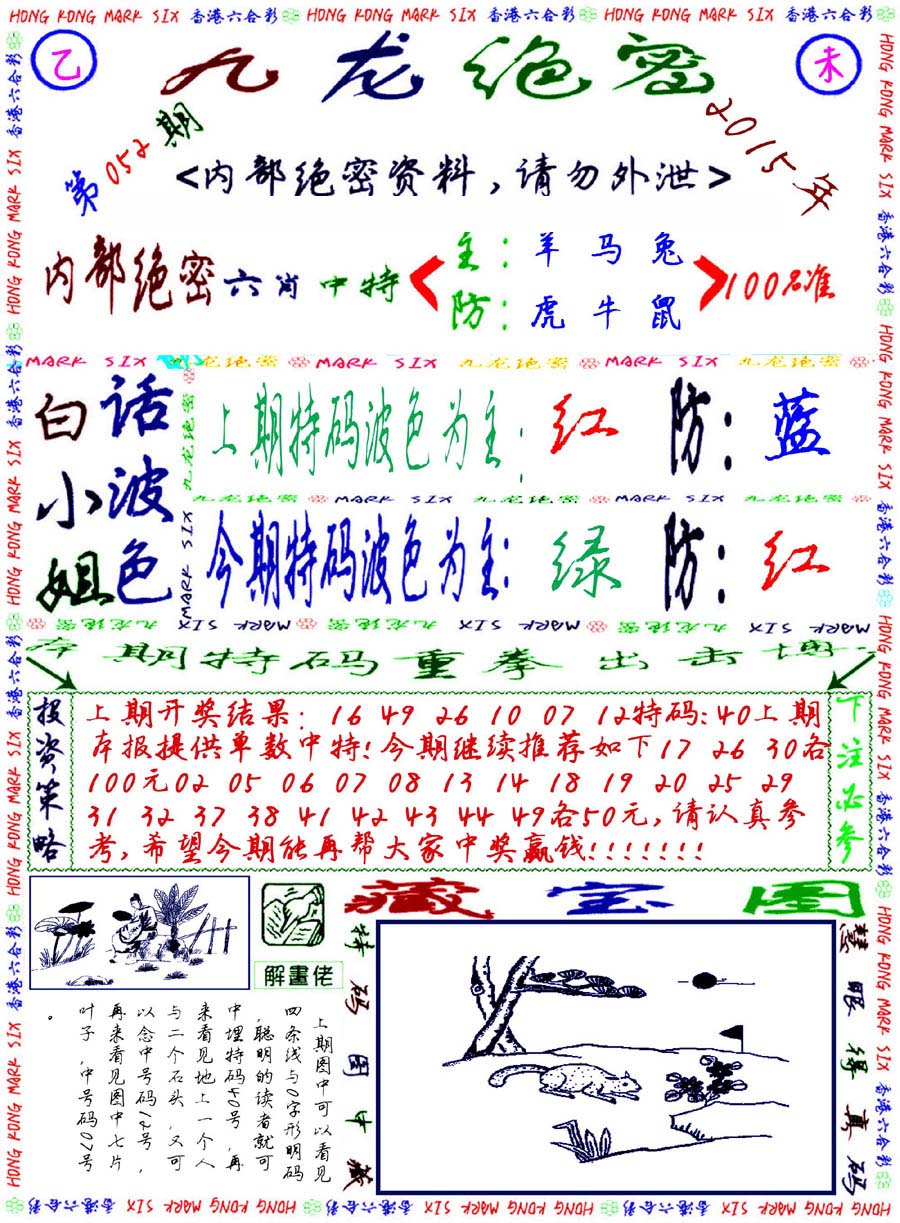 HONG KONG MARK SIX 香港六合彩 HONG KONG MARK SIX 香港六合彩 HONG KONG MARK SIX 香港六合彩
乙 九龙绝密 未
第052期 2015年
<内部绝密资料,请勿外泄>
内部绝密六肖中特
主:羊马兔
防:虎牛鼠
100名准
MARK SIX 九龙绝密 MARK SIX 九龙绝密 MARK SIX 九龙绝密
白话
小波
姐色
上期特码波色为主:红 防:蓝
九龙绝密 MARK SIX 九龙绝密 MARK SIX 九龙绝密
今期特码波色为主:绿 防:红
MARK SIX 九龙绝密 MARK SIX 九龙绝密 MARK SIX 九龙绝密
本期特码重拳出击博
投资策略
上期开奖结果:16 49 26 10 07 12特码:40上期
本报提供单数中特!今期继续推荐如下17 26 30各
100元02 05 06 07 08 13 14 18 19 20 25 29
31 32 37 38 41 42 43 44 49各50元,请认真参
考,希望今期能再帮大家中奖赢钱!!!!!!!
下注必参
解畫佬
上期图中可以看见
四条线与0字形明码
,聪明的读者就可
中埋特码40号,再
来看见地上一个人
与二个石头,又可
以念中号码12号,
再来看见图中七片
叶子,中号码07号
。
藏宝图
特码图中藏
慧眼得真码
HONG KONG MARK SIX 香港六合彩 HONG KONG MARK SIX 香港六合彩 HONG KONG MARK SIX 香港六合彩